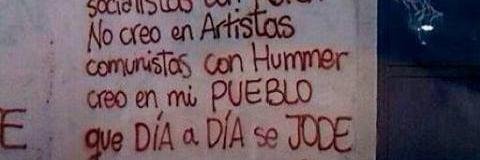 socialistas con
No creo en Artistas
comunistas con Hummer
creo en mi PUEBLO
E
que DÍA a DÍA se JODE